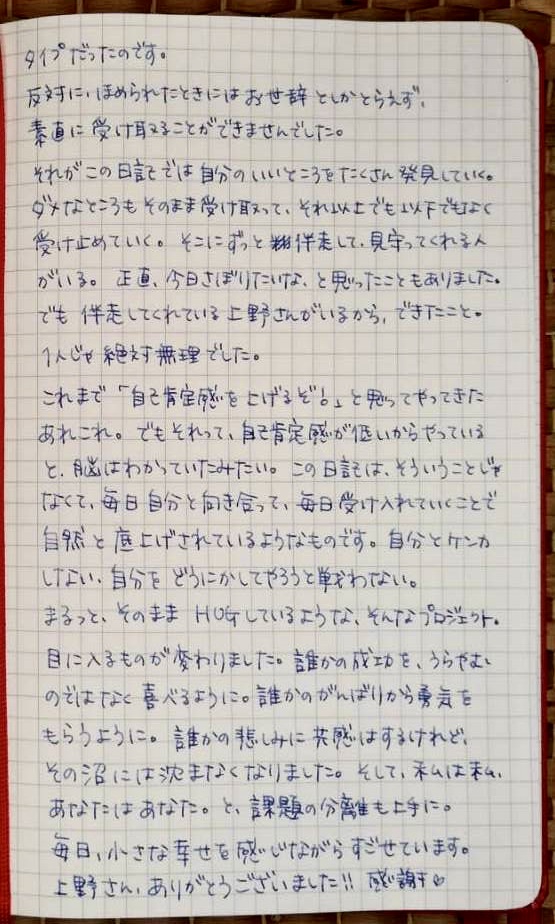 タイプだったのです。
反対に、ほめられたときにはお世辞としかとらえず、
素直に受け取ることができませんでした。
それがこの日記では自分のいいところをたくさん発見していく。
ダメなところもそのまま受け取って、それ以上でも以下でもなく
受け止めていく。そこにずっと伴走して、見守ってくれる人
がいる。正直、今日さぼりたいな、と思ったこともありました。
でも伴走してくれている上野さんがいるから、できたこと。
1人じゃ絶対無理でした。
これまで「自己肯定感を上げるぞ!」と思ってやってきた
あれこれ。でもそれって、自己肯定感が低いからやっている
と、脳はわかっていたみたい。この日記は、そういうことじゃ
なくて、毎日自分と向き合って、毎日受け入れていくことで
自然と底上げされているようなものです。自分とケンカ
しない、自分をどうにかしてやろうと戦わない。
まるっと、そのままHUGしているような、そんなプロジェクト。
目に入るものが変わりました。誰かの成功を、うらやむ
のではなく喜べるように。誰かのがんばりから勇気を
もらうように。誰かの悲しみに共感はするけれど、
その沼には沈まなくなりました。そして、私は私、
あなたはあなた。と、課題の分離も上手に。
毎日、小さな幸せを感じながらすごせています。
上野さん、ありがとうございました!! 感謝♡